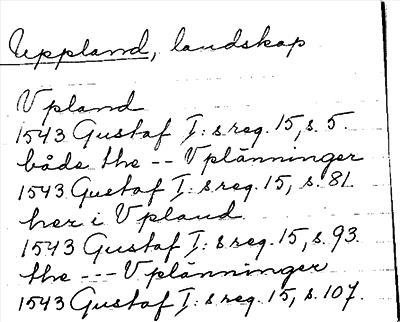 Uppland, landskap
Vpland
1543 Gustaf I:s reg. 15, s. 5.
både the -- Vplänninger
1543 Gustaf I:s reg. 15, s. 81.
her i Vpland
1543 Gustaf I:s reg. 15, s. 93.
the --- Vplänninger
1543 Gustaf I:s reg. 15, s. 107.